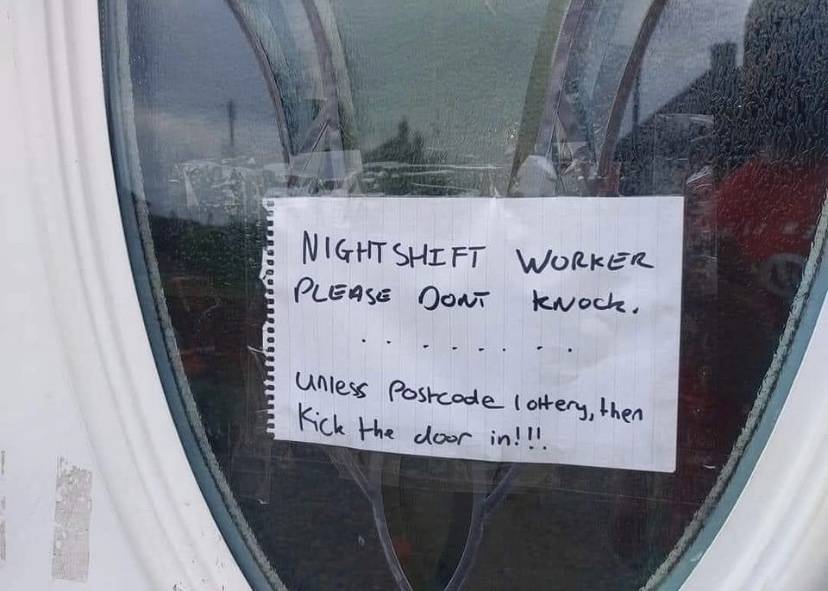 NIGHTSHIFT WORKER
PLEASE DONT KNOCK.
. . . . . . . .
unless Postcode lottery, then
Kick the door in!!!